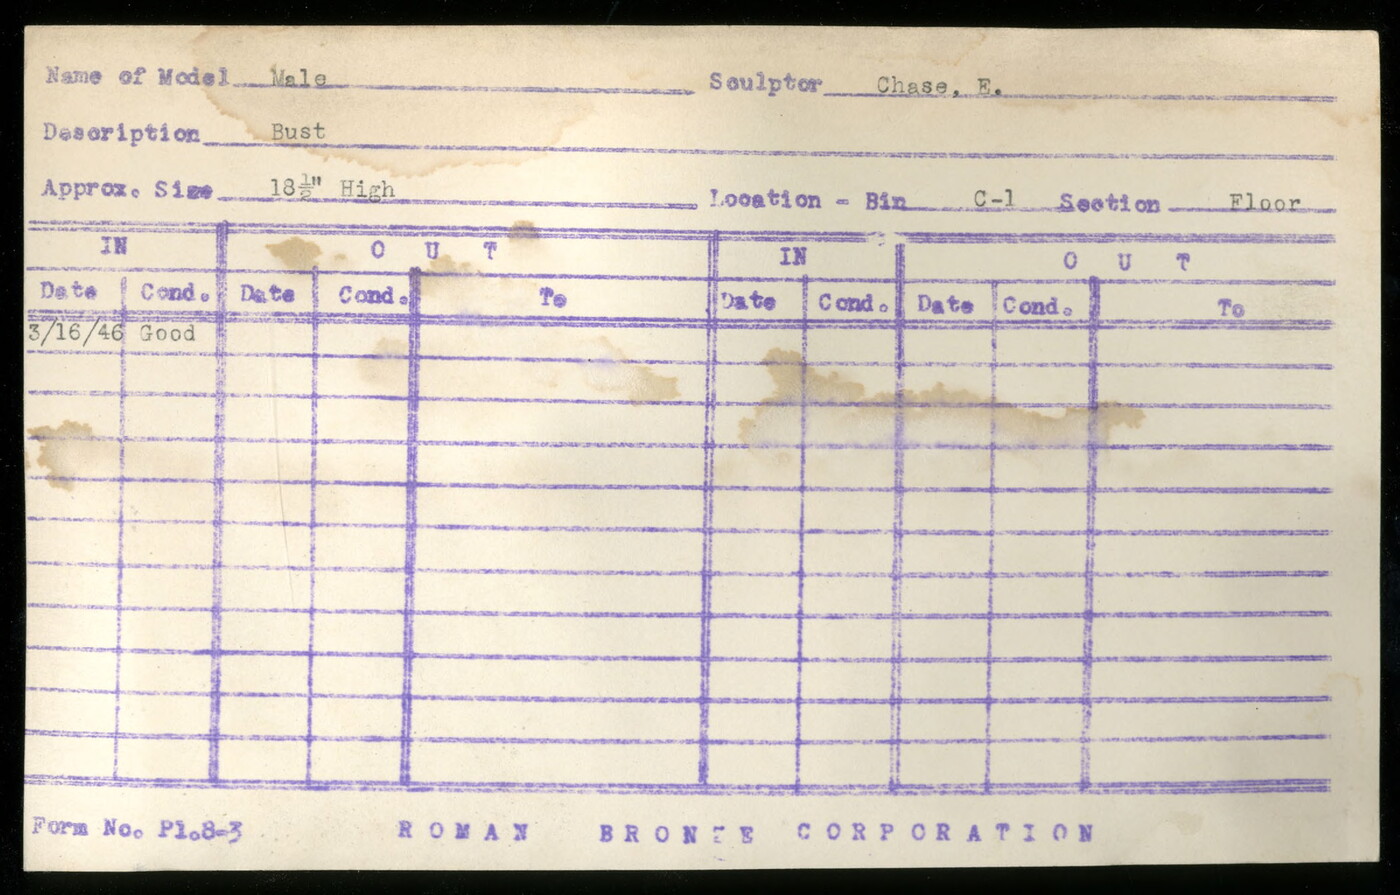 Name of Model Male Sculptor Chase, E.
Description Bust
Approx. Size 18½" High Location - Bin C-1 Section Floor
IN O U T IN O U T
Date Cond. Date Cond. To Date Cond. Date Cond. To
3/16/46 Good
Form No. Pl.8-3 ROMAN BRONZE CORPORATION